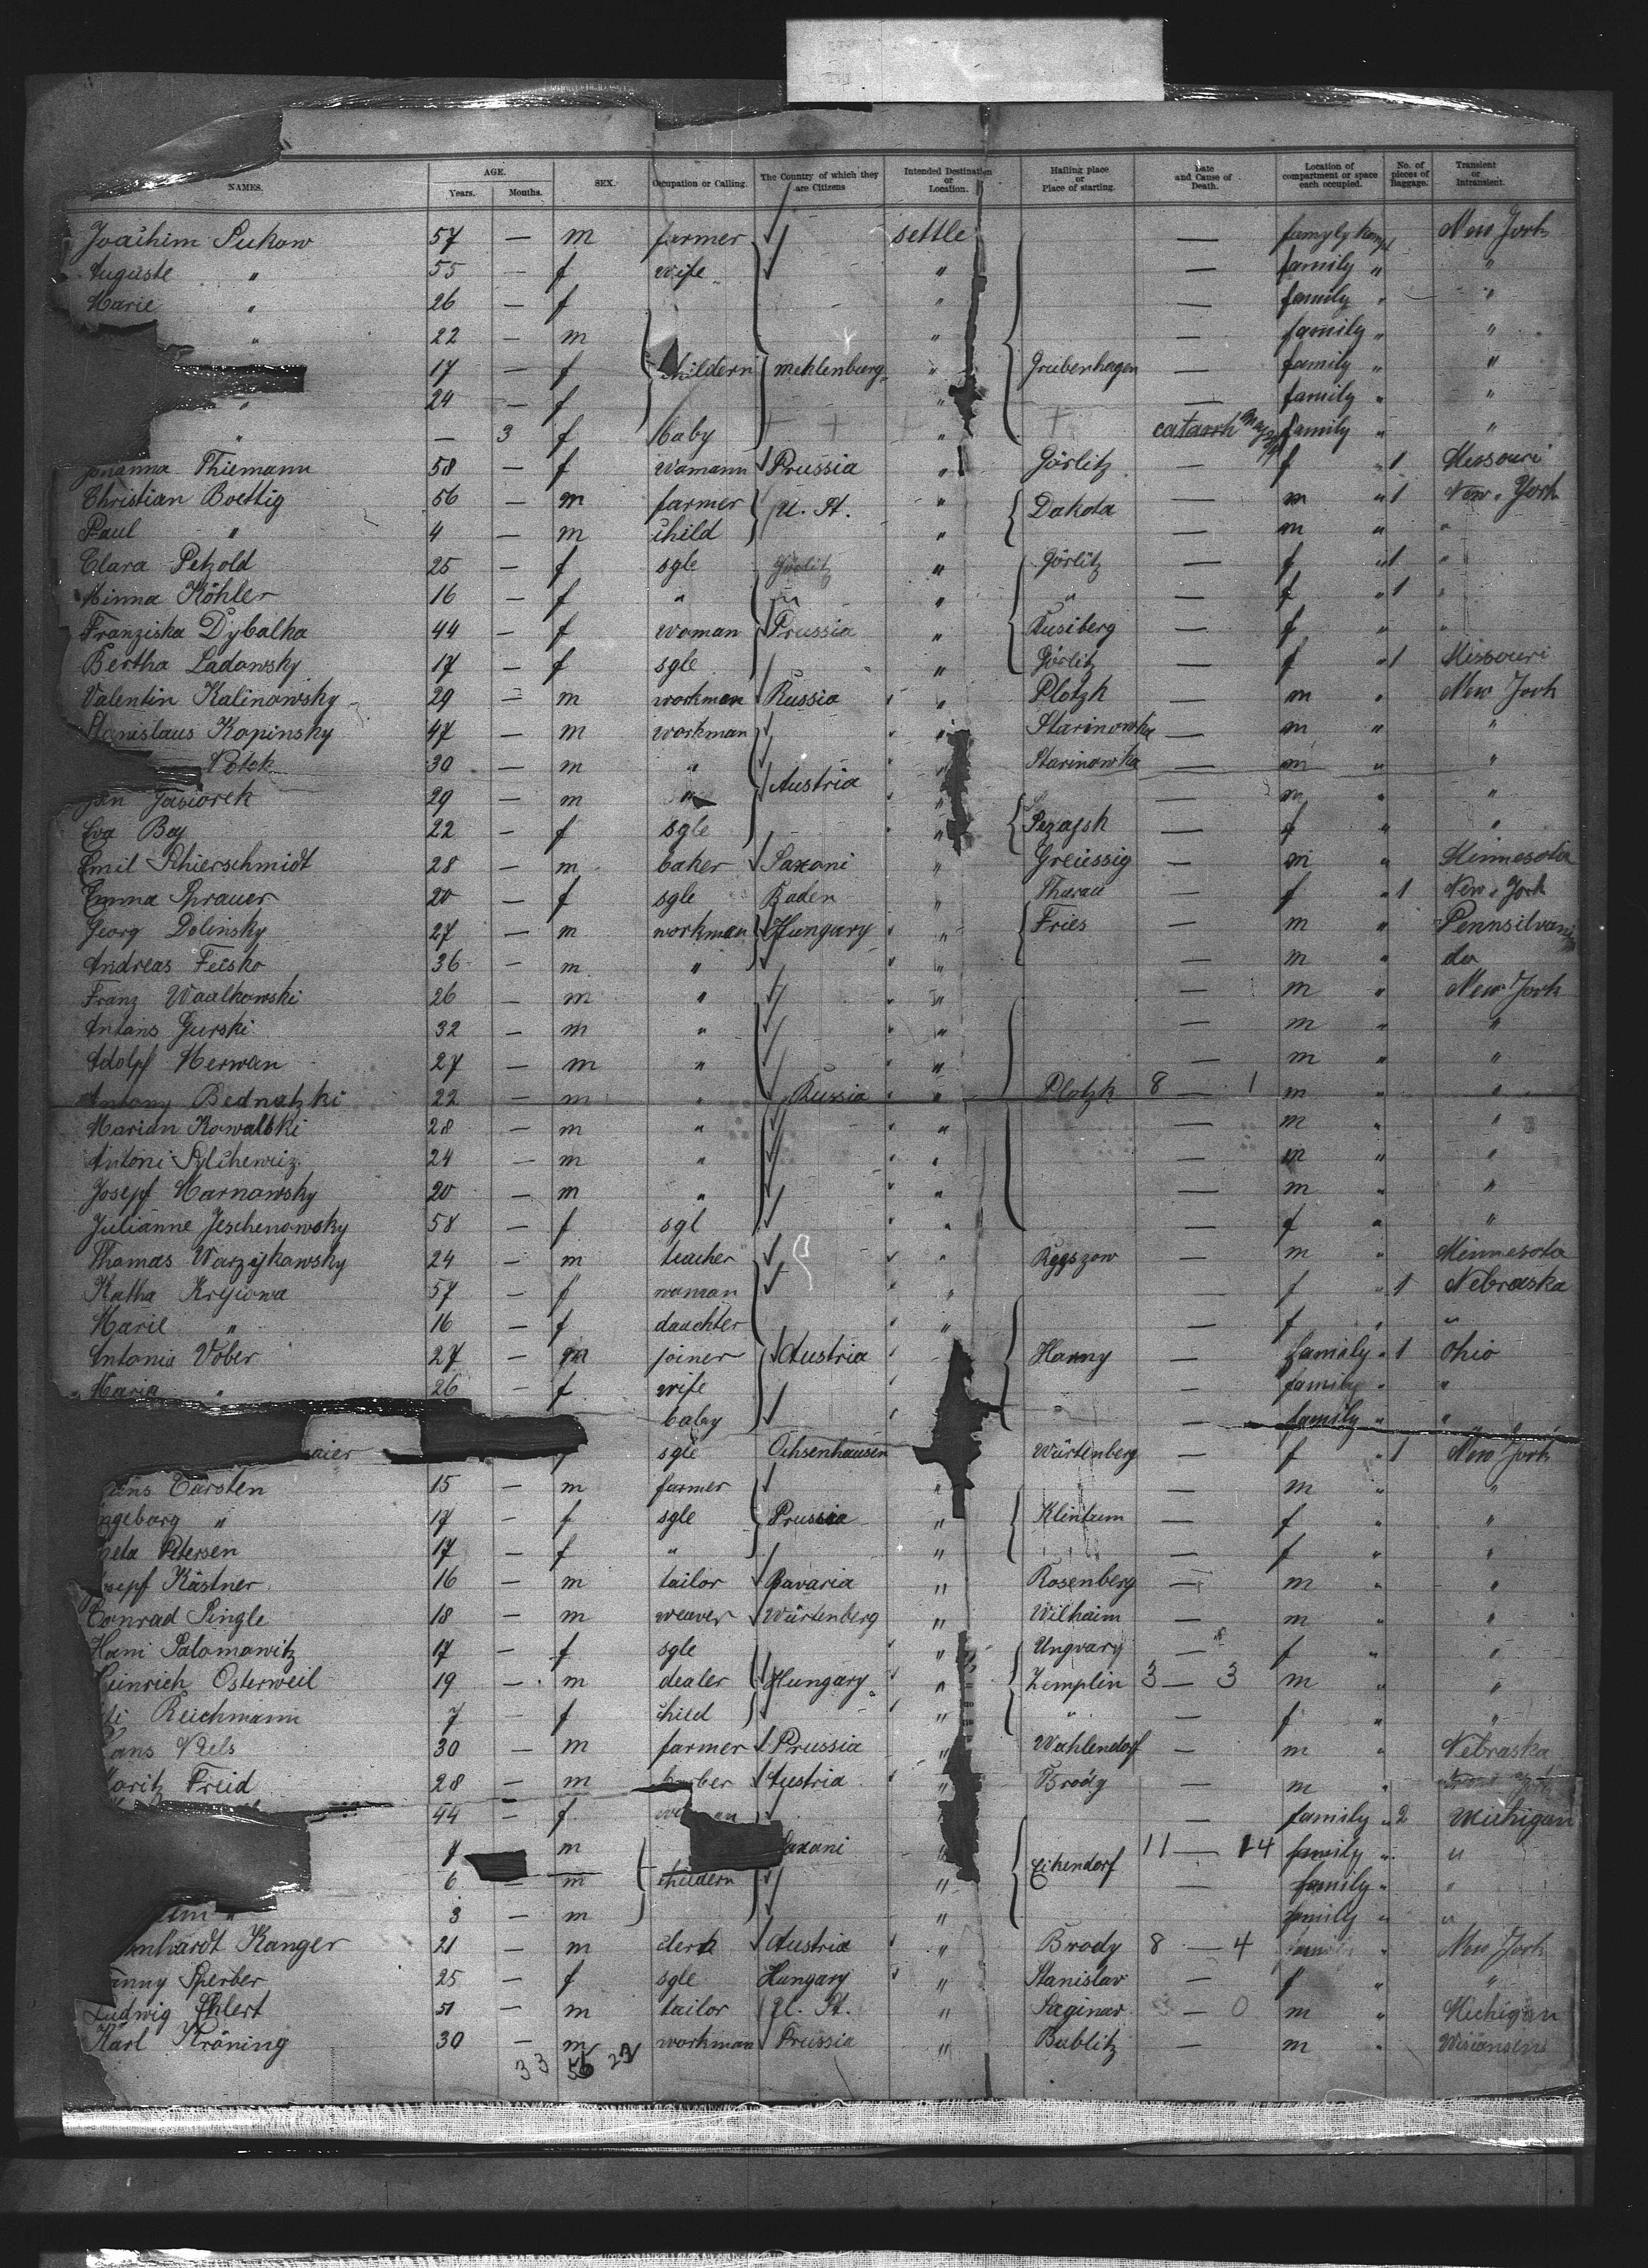 NAMES. AGE. Years. Months. SEX. Occupation or Calling. The Country of which they are Citizens Intended Destination or Location. Hailing place or Place of starting. Date and Cause of Death. Location of compartment or space each occupied. No. of pieces of Baggage. Transient or Intransient.
Joachim Sukow 57 — m farmer settle — New York
Auguste " 55 — f wife " — family " "
Marie " 26 — f " — family " "
" 22 — m " — family " "
17 — f childern Meklenburg " Grubenhagen — family " "
" 24 — f " — family " "
" — 3 f baby " catarrh family " "
Johanna Thiemann 58 — f Womann Prussia " Görlitz — f " 1 Missouri
Christian Boettig 56 — m farmer U. St. " Dakota — m " 1 New York
Paul " 4 — m child " — m " "
Clara Petzold 25 — f sgle Görlitz " Görlitz — f " 1 "
Minna Köhler 16 — f " " " " — f " 1 "
Franziska Dybalka 44 — f woman Prussia " — f " "
Bertha Ladowsky 17 — f sgle " Görlitz — f " 1 Missouri
Valentin Kalinowsky 29 — m workman Russia " Plotzk — m " New York
Stanislaus Kopinsky 47 — m workman " Starinowka — m " "
Potok 30 — m " " Starinowka — m " "
Jan Jasiorek 29 — m " Austria " — m " "
Eva Bay 22 — f sgle " — f " "
Emil Schierschmidt 28 — m baker Saxoni " Greiessig — m " Minnesota
Emma Sprauer 20 — f sgle Baden " Tharau — f " 1 New York
Georg Dolinsky 27 — m workman Hungary " Fries — m " Pennsilvania
Andreas Feisko 36 — m " " — m " do
Franz Waalkowski 26 — m " " — m " New York
Antons Gurski 32 — m " " — m " "
Adolf Merwan 27 — m " " — m " "
Antony Bednatzki 22 — m " Russia " Plotzk 8 — 1 m " "
Marian Kowalski 28 — m " " — m " "
Antoni 24 — m " " — m " "
Josepf Marnawsky 20 — m " " — m " "
Julianne Jeschenowsky 58 — f sgl " — f " "
Thomas Warzykawsky 24 — m teacher " — m " Minnesota
Katha Krysiowa 57 — f woman " — f " 1 Nebraska
Marie " 16 — f dauchter " — f " "
Antonia Vober 27 — m joiner Austria Hanny — family " 1 Ohio
Maria " 26 — f wife — family " "
baby — family " "
sgle Ochsenhausen Würtenberg — f " 1 New York
Carsten 15 — m farmer " — m " "
Ingeborg " 17 — f sgle Prussia " Klintum — f " "
Petersen 17 — f " " — f " "
Josepf Kästner 16 — m tailor Bavaria " Rosenberg — m " "
Conrad Single 18 — m weaver Würtenberg " Wilhaim — m " "
Hani Salomowitz 17 — f sgle " Ungvary — f " "
Heinrich Osterweil 19 — m dealer Hungary " Zemplin 3 — 3 m " "
Reichmann 7 — f child " " — f " "
Hans 30 — m farmer Prussia " Wahlendorf — m " Nebraska
Moritz Freid 28 — m barber Austria " Brody — m "
44 — f — family " 2 Michigan
7 m Saxani " Eichendorf 11 — 14 family " "
6 — m childern " — family " "
" 3 — m " — family " "
Kanger 21 — m clerk Austria " Brody 8 — 4 " New York
Fanny Sperber 25 — f sgle Hungary " Stanislav — f " "
Ludwig Ehlert 51 — m tailor U. St. " Saginar — 0 m " Michigan
Karl Kröning 30 — m workman Prussia " Bublitz — m " Wisconsen
33 56 23